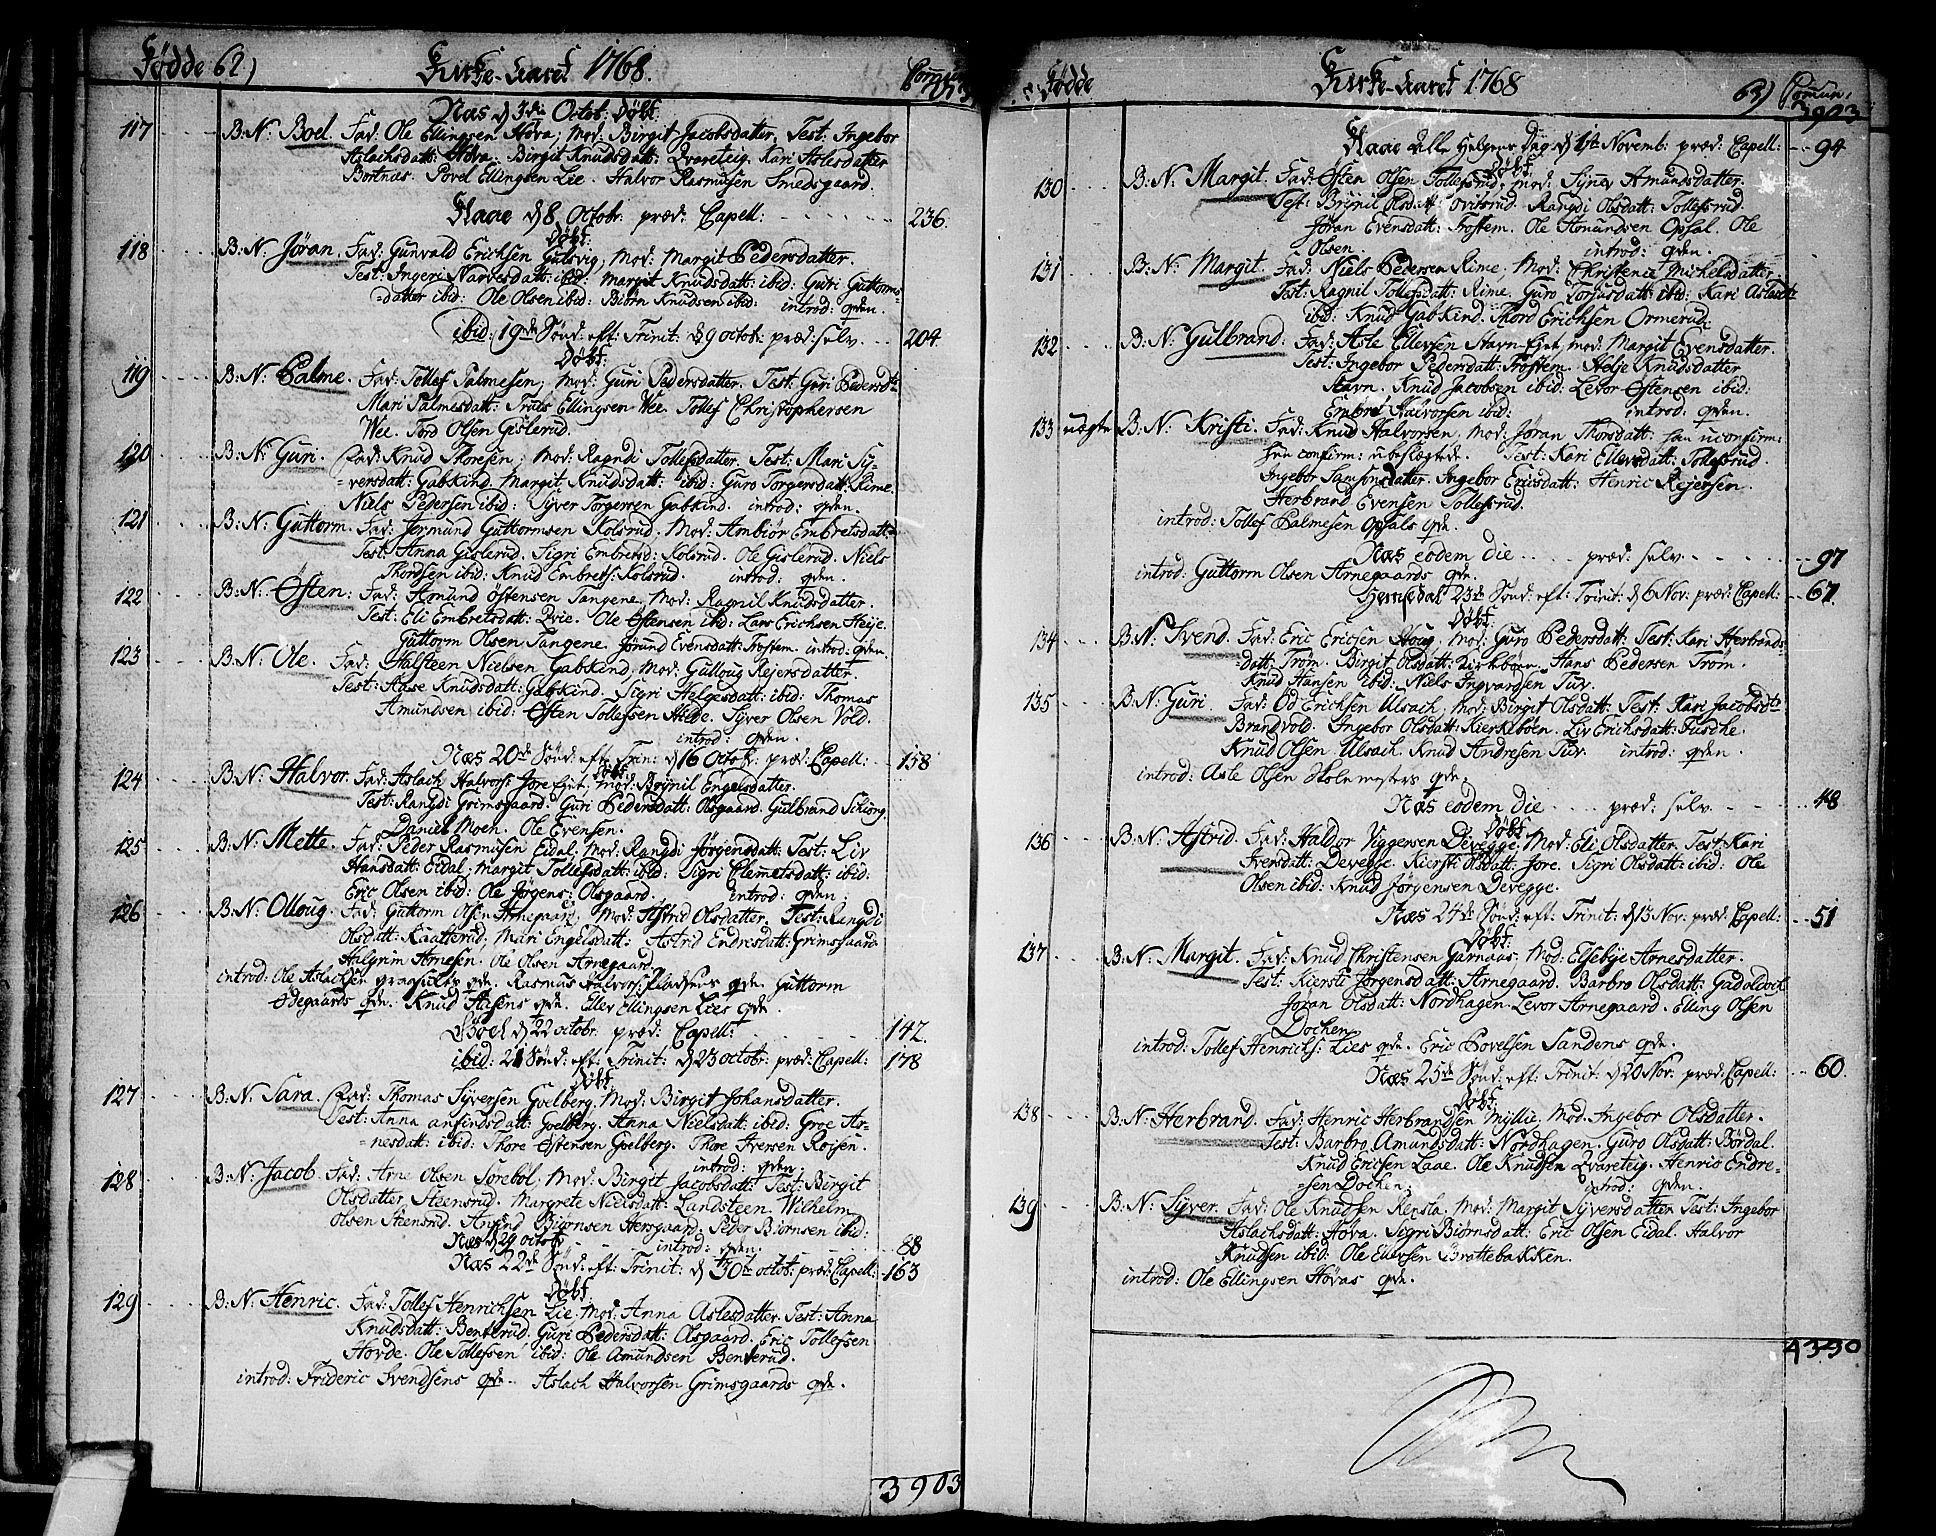 Fødde 62) Kirke-Aaret 1768.
Næs d 3die Octob: Døbt:
117 B: N: Boel. Fad: Ole Ellingsen Høva; Mod: Birgit Jacobsdatter. Test: Ingebor
Aslachsdatt: Høva. Birgit Knudsdatt: Qvareteig. Kari Aslesdatter
Bortnæs. Povel Ellingsen Lie. Halvor Rasmusen Smedsgaard.
d 8 Octobr: præd: Capell: 236.
Døbt:
118 B: N: Jøran. Fad: Gunvald Erichsen Gulsvig; Mod: Margit Pedersdatter.
Test: Ingeri Narvesdatt: ibid: Margit Knudsdatt: ibid: Guri Guttorms=
=datter ibid: Ole Olsen ibid: Biørn Knudsen ibid: introd: qvden.
ibid: 19de Sønd: eft: Trinit: d 9 octob: præd: selv. 204
Døbt:
119 B: N: Palme. Fad: Tollef Palmesen; Mod: Guri Pedersdatter. Test: Guri Pedersdtr
Mari Palmesdatt: Truls Ellingsen Wee. Tollef Christophersen
Wee. Tord Olsen Gislerud.
120 B: N: Guri. Fad: Knud Thoresen; Mod: Ragndi Tollefsdatter. Test: Mari Sy=
=versdatt: Gabkind. Margit Knudsdatt: ibid: Guro Torgersdatt: Rime.
Niels Pedersen ibid: Syver Torgersen Gabkind. introd: qvden.
121 B: N: Guttorm. Fad: Jermund Guttormsen Kolsrud. Mod: Ambiør Embretsdatt:
Test: Anna Gislerud. Sigri Embretsd: Kolsrud. Ole Gislerud. Niels
Thordsen ibid: Knud Embrets: Kolsrud. introd: qvden.
122 B: N: Østen. Fad: Amund Østensen Tangene. Mod: Ragnil Knudsdatter.
Test: Eli Embretsdatt: Qvie. Ole Østensen ibid: Lars Erichsen Heije.
Guttorm Olsen Tangene. Jørund Evensdatt: Trostem. introd: qvden.
123 B: N: Ole. Fad: Halsteen Nielsen Gabkind; Mod: Gulloug Rejersdatter.
Test: Aase Knudsdatt: Gabkind. Sigri Helgesdatt: ibid: Thomas
Amundsen ibid: Østen Tollefsen Hilde. Syver Olsen Vold.
introd: qvden.
Næs 20de Sønd: eft: Trin: d 16 Octob: præd: Capell: 158
Døbt:
124 B: N: Halvor. Fad: Aslach Halvors: Jore Ejet, Mod: Brynil Engelsdatter.
Test: Rangdi Grimsgaard. Guri Pedersdatt: Olsgaard. Gulbrand Schiøng.
Daniel Moen. Ole Evensen.
125 B: N: Mette. Fad: Peder Rasmusen Eidal. Mod: Rangdi Jørgensdatt: Test: Liv
Hansdatt: Eidal; Margit Tollefsdatt: ibid: Sigri Clemetsdatt: ibid:
Eric Olsen ibid: Ole Jørgens: Olsgaard. introd: qvden.
126 B: N: Olloug. Fad: Guttorm Olsen Arnegaard; Mod: Astrid Olsdatter. Test: Rangdi
Olsdatt: Kaatterud; Mari Engelsdatt: Astrid Endresdatt: Grimsgaard
Halgrim Arnesen. Ole Olsen Arnegaard.
introd: Ole Aslachsen qvde. Rasmus Halvors: Pladsens qvde. Guttorm
Ødegaards qvde. Knud Aasens qvde. Eller Ellingsen Lies qvde.
d 22 octobr: præd: Capell: 142.
ibid: 21 Sønd: eft: Trinit: d 23 octobr: præd: Capell: 178
Døbt:
127 B: N: Sara. Fad: Thomas Syversen Goelberg. Mod: Birgit Johansdatter.
Test: Anna anfindsdatt: Goelberg. Anna Nielsdatt: ibid: Groe Ar=
=nesdatt: ibid: Thore Østensen Goelberg. Thore Iversen Roisen.
introd: qvden.
128 B: N: Jacob. Fad: Arne Olsen Sørebøl; Mod: Birgit Jacobsdatt: Test: Birgit
Olsdatter Steensrud. Margrete Nielsdatt: Landsteen. Wilhelm
Olsen Stensrud. Anfind Biørnsen Hersgaard. Peder Biørnsen ibid:
Næs d 29 octobr: introd: qvden. 88
Næs 22de Sønd: eft: Trinit: d 30te octob: præd: Capell: 163
Døbt:
129 B: N: Henric. Fad: Tollef Henrichsen Lie. Mod: Anna Aslesdatter. Test: Anna
Knudsdatt: Benterud. Guri Pedersdatt: Olsgaard. Eric Tollefsen
Hovde. Ole Tollefsen ibid: Ole Amundsen Benterud.
introd: Frideric Svendsens qvde. Aslach Halvorsen Grimsgaards qvde.
3903
Fødde Kirke-Aaret 1768 63) Comun:
3903
Alle Helgens Dag d 1ste Novemb: præd: Capell: 94
Døbt:
130 B: N: Margit. Fad: Østen Olsen Tollefsrud; Mod: Synnev Amundsdatter.
Test: Brynil Olsdatt: Rangdi Olsdatt: Tollefsrud
Jøran Evensdatt: Trostem. Ole Amundsen Opsal. Ole
Olsen. introd: qvden.
131 B: N: Margit. Fad: Niels Pedersen Rime; Mod: Christence Michelsdatter.
Test: Ragnil Tollefsdatt: Rime. Guro Torgersdatt: ibid: Kari Aslesdtr
ibid: Knud Gabkind. Thord Erichsen Ormerud.
132 B: N: Gulbrand. Fad: Asle Ellevsen Stavn-Ejet, mod: Margit Evensdatter.
Test: Ingebor Pedersdatt: Trostem. Helje Knudsdatter
Stavn. Knud Jacobsen ibid: Levor Østensen ibid:
Embret Halvorsen ibid: introd: qvden.
133 uægte B: N: Kristi. Fad: Knud Halvorsen, Mod: Jøran Thorsdatt: han uconfirm:
hun confirm: ubeslægtede. Test: Kari Ellevsdatt: Tollefsrud.
Ingebor Samsonsdatter. Ingebor Ericsdatt: Henric Rejersen.
Herbrand Evensen Tollefsrud.
introd: Tollef Palmesen Opsals qvde.
Næs eodem die præd: selv 97
introd: Guttorm Olsen Arnegaards qvde.
Hemsedal 23de Sønd: eft: Trinit: d 6 Nov: præd: Capell: 67.
Døbt:
134 B: N: Svend. Fad: Eric Ericsen Houg, Mod: Guro Pedersdatt: Test: Kari Herbrands
=datt: Trøm. Birgit Olsdatt: Kirkebøen. Hans Pedersen Trøm.
Knud Hansen ibid: Niels Ingvardsen Tuv.
135 B: N: Guri. Fad: Od Erichsen Ulsach; Mod: Birgit Olsdatt: Test: Kari Jacobsdtr
Brandvold. Ingebor Olsdatt: Kierkebøen. Liv Erichsdatt: Fuschе.
Knud Olsen Ulsach. Knud Andresen Tuv. introd: qvden.
introd: Asle Olsen Skolemesters qvde.
Næs eodem die præd: selv 48
Døbt:
136 B: N: Astrid. Fad: Haldor Viggersen Devegge, Mod: Eli Olsdatter. Test: Kari
Iversdatt: Devegge. Kiersti Olsdatt: Jore. Sigri Olsdatt: ibid: Ole
Olsen ibid: Knud Jørgensen Devegge.
Næs 24de Sønd: eft: Trinit: d 13 Nov: præd: Capell: 51
Døbt:
137 B: N: Margit. Fad: Knud Christensen Garnaas, Mod: Elsebje Arnesdatter.
Test: Kiersti Jørgensdatt: Arnegaard. Barbro Olsdatt:
Jøran Olsdatt: Nordhagen. Levor Arnegaard. Elling Olsen
Dochen.
introd: Tollef Henrichs: Lies qvde. Eric Povelsen Sandens qvde.
Næs 25de Sønd: eft: Trinit: d 20 Nov: præd: Capell: 60.
Døbt:
138 B: N: Herbrand. Fad: Henric Herbrandsen Myllie, Mod: Ingebor Olsdatter.
Test: Barbro Amundsdatt: Nordhagen. Guro Olsdatt: Børdal.
Knud Ericsen Laae. Ole Knudsen Qvareteig. Henric Endre=
=sen Dochen. introd: qvden.
139 B: N: Syver. Fad: Ole Knudsen Rensla. Mod: Margit Syversdatter. Test: Ingebor
Aslachsdatt: Høva. Sigri Biørnsdatt: Eric Olsen Eidal. Halvor
Knudsen ibid: Ole Brattebakken.
introd: Ole Ellingsen Høvas qvde.
4390